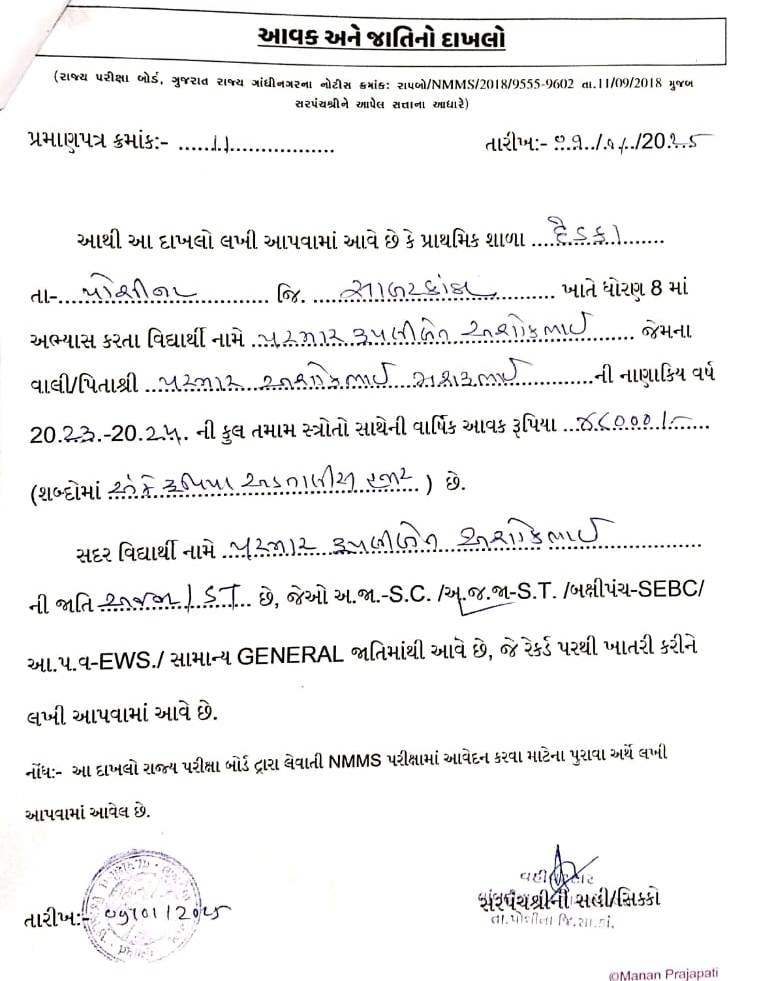 આવક અને જાતિનો દાખલો
(રાજ્ય પરીક્ષા બોર્ડ, ગુજરાત રાજ્ય ગાંધીનગરના નોટીસ ક્રમાંક: રાપબો/NMMS/2018/9555-9602 તા.11/09/2018 મુજબ
સરપંચશ્રીને આપેલ સત્તાના આધારે)
પ્રમાણપત્ર ક્રમાંક:- ......11..................
તારીખ:- ../૦૧/20૨૫
આથી આ દાખલો લખી આપવામાં આવે છે કે પ્રાથમિક શાળા ....દેડકા.......
તા-....પોશીના............... જિ. ....સાબરકાંઠા............ ખાતે ધોરણ 8 માં
અભ્યાસ કરતા વિદ્યાર્થી નામે ..પરમાર રૂપલીબેન અશોકભાઈ....... જેમના
વાલી/પિતાશ્રી ..પરમાર અશોકભાઈ ...........ની નાણાકિય વર્ષ
20.૨૩.-20.૨૪. ની કુલ તમામ સ્ત્રોતો સાથેની વાર્ષિક આવક રૂપિયા ..૪૮૦૦૦/-......
(શબ્દોમાં અંકે રૂપિયા અડતાલીસ હજાર ..) છે.
સદર વિદ્યાર્થી નામે ..પરમાર રૂપલીબેન અશોકભાઈ...............
ની જાતિ અજજા/ST.. છે, જેઓ અ.જા.-S.C. /અ.જ.જા-S.T. /બક્ષીપંચ-SEBC/
આ.પ.વ-EWS./ સામાન્ય GENERAL જાતિમાંથી આવે છે, જે રેકર્ડ પરથી ખાતરી કરીને
લખી આપવામાં આવે છે.
નોંધ:- આ દાખલો રાજ્ય પરીક્ષા બોર્ડ દ્વારા લેવાતી NMMS પરીક્ષામાં આવેદન કરવા માટેના પુરાવા અર્થે લખી
આપવામાં આવેલ છે.
વહીવટદાર
સરપંચશ્રીની સહી/સિક્કો
તા.પોશીના જિ.સા.કાં.
તારીખ:- ૦૧/૦૧/૨૦૨૫
©Manan Prajapati